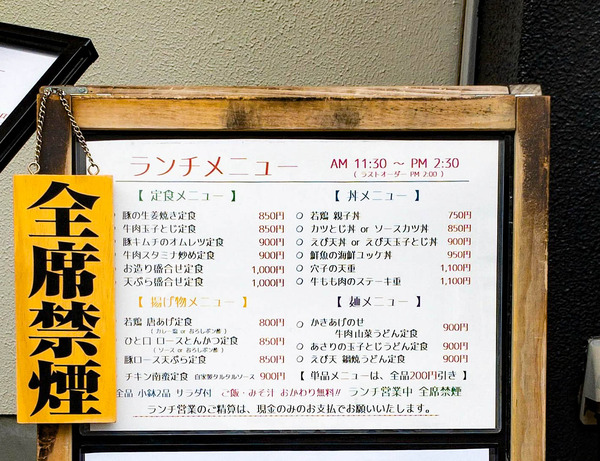 全席禁煙
ランチメニュー AM 11:30 ～ PM 2:30
( ラストオーダー PM 2:00 )
【 定食メニュー 】
豚の生姜焼き定食 850円
牛肉玉子とじ定食 850円
豚キムチのオムレツ定食 900円
牛肉スタミナ炒め定食 900円
お造り盛合せ定食 1,000円
天ぷら盛合せ定食 1,000円
【 丼メニュー 】
○ 若鶏 親子丼 750円
○ カツとじ丼 or ソースカツ丼 850円
○ えび天丼 or えび天玉子とじ丼 900円
○ 鮮魚の海鮮ユッケ丼 950円
○ 穴子の天重 1,100円
○ 牛もも肉のステーキ重 1,100円
【 揚げ物メニュー 】
若鶏 唐あげ定食 800円
( カレー塩 or おろしポン酢 )
ひと口 ロースとんかつ定食 850円
( ソース or おろしポン酢 )
豚ロース天ぷら定食 850円
チキン南蛮定食 自家製タルタルソース 900円
【 麺メニュー 】
○ かきあげのせ
牛肉山菜うどん定食 900円
○ あさりの玉子とじうどん定食 900円
○ えび天 鍋焼うどん定食 900円
【 単品メニューは、全品200円引き 】
全品 小鉢2品 サラダ付 ご飯・みそ汁 おかわり無料!! ランチ営業中 全席禁煙
ランチ営業のご精算は、現金のみのお支払でお願いいたします。